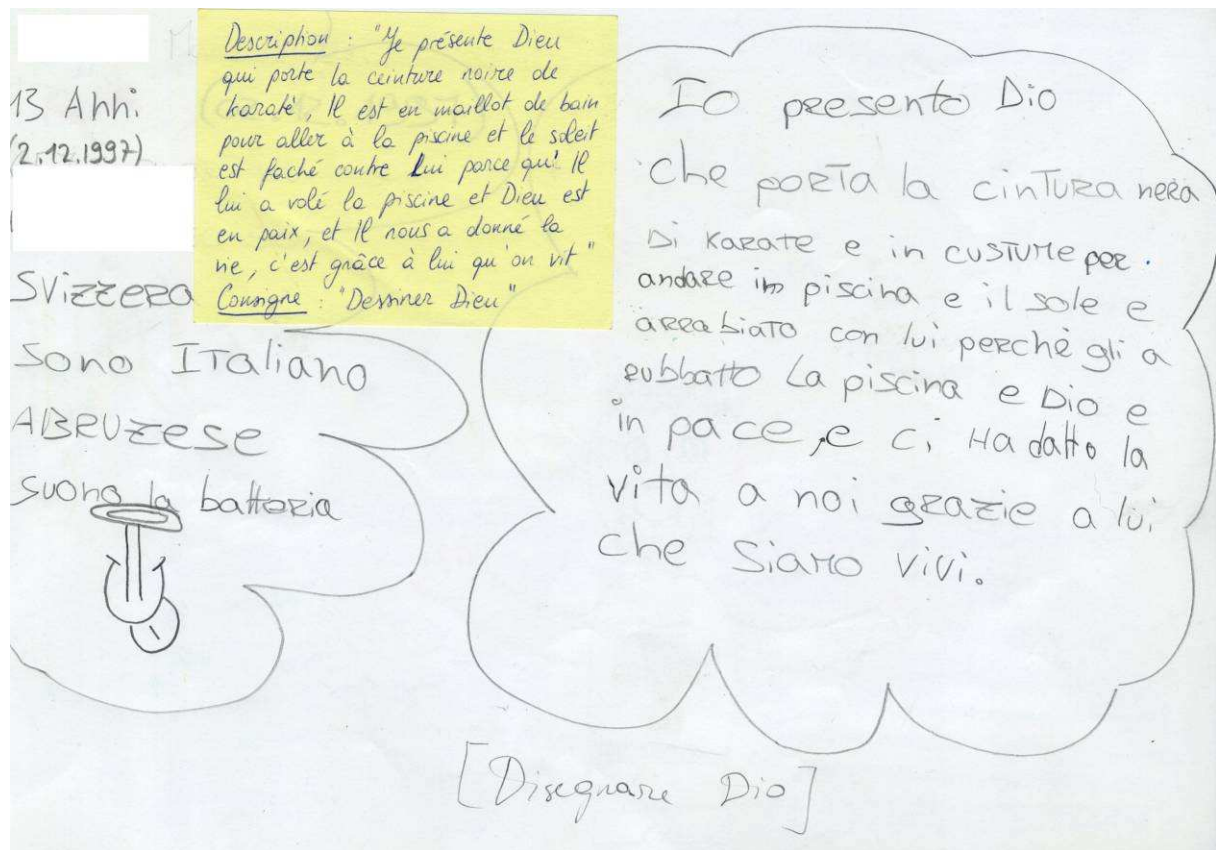 13 Anni
(2.12.1997)
Svizzera
Sono Italiano
ABRUZESE
suono la batteria
Description : "Je présente Dieu
qui porte la ceinture noire de
karaté, Il est en maillot de bain
pour aller à la piscine et le soleil
est faché contre Lui parce qu'Il
lui a volé la piscine et Dieu est
en paix, et Il nous a donné la
vie, c'est grâce à lui qu'on vit"
Consigne : "Dessiner Dieu"
Io presento Dio
che porta la cintura nera
Di Karate e in custume per
andare in piscina e il sole e
arrabiato con lui perchè gli a
rubbatto la piscina e Dio e
in pace, e ci Ha datto la
vita a noi grazie a lui
che Siamo vivi.
[Disegnare Dio]